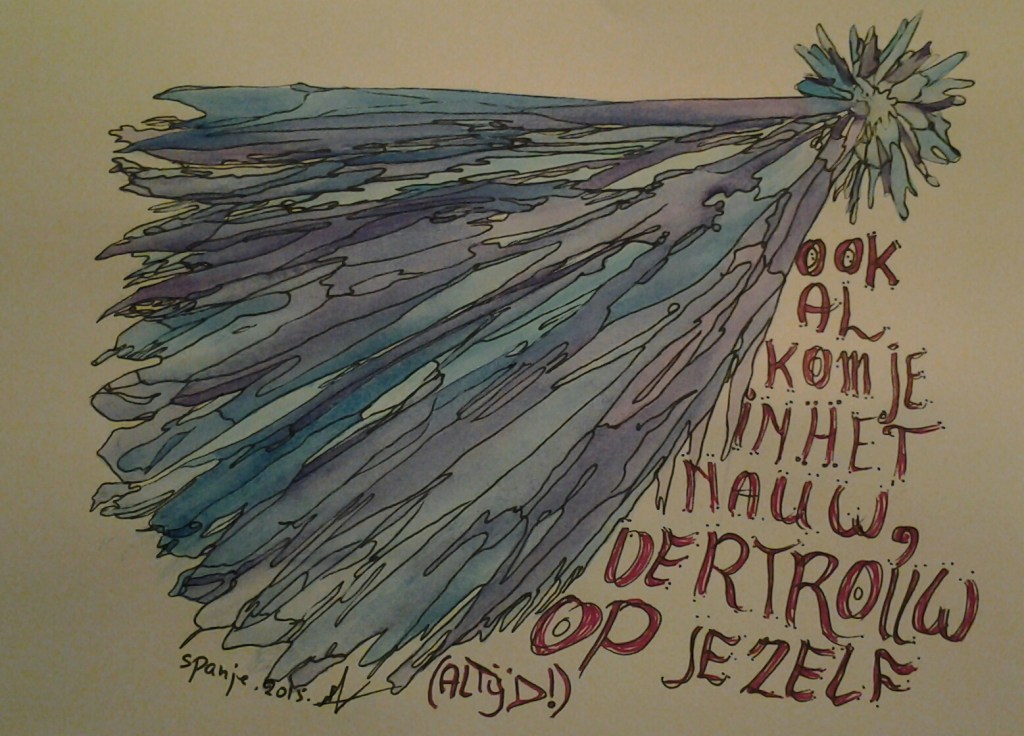 OOK
AL
KOM JE
IN HET
NAUW,
DERTROUW
OP JEZELF
(ALTijD!)
spanje. 2015.